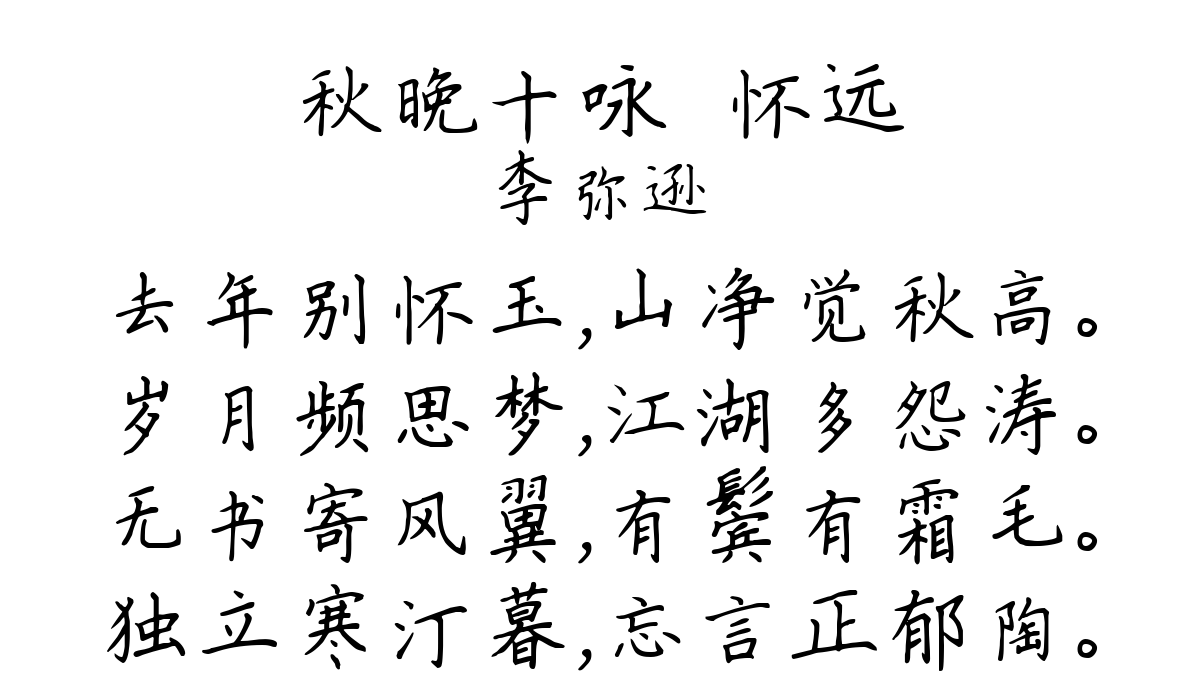 秋晚十咏 怀远
李弥逊
去年别怀玉,山净觉秋高。
岁月频思梦,江湖多怨涛。
无书寄风翼,有鬓有霜毛。
独立寒汀暮,忘言正郁陶。